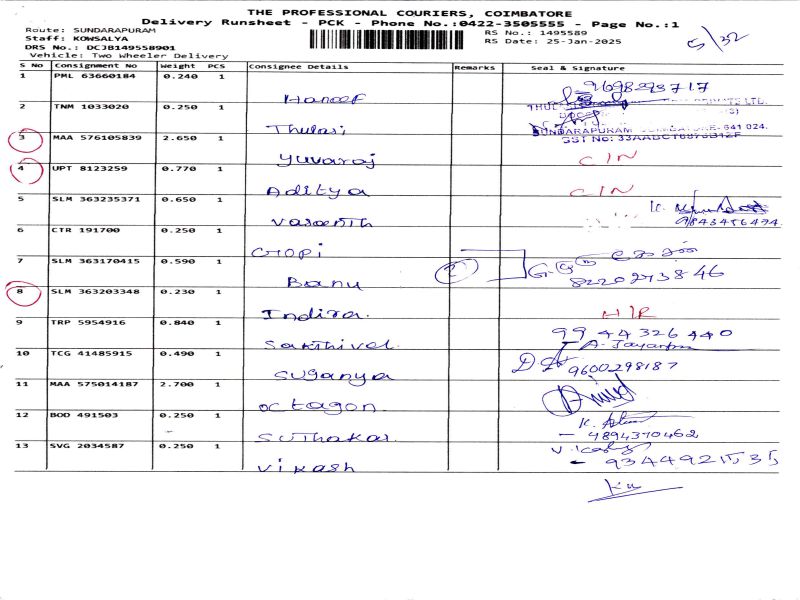 THE PROFESSIONAL COURIERS, COIMBATORE
Delivery Runsheet - PCK - Phone No.:0422-3505555 - Page No.:1
Route: SUNDARAPURAM
Staff: KOWSALYA
DRS No.: DCJB149558901
Vehicle: Two Wheeler Delivery
RS No.: 1495589
RS Date: 25-Jan-2025
5/32
S No Consignment No Weight PCS Consignee Details Remarks Seal & Signature
1 PML 63660184 0.240 1 Haneef 9698293717
2 TNM 1033020 0.250 1 Thulasi
SUNDARAPURAM, COIMBATORE-641 024.
3 MAA 576105839 2.650 1 Yuvaraj CIN
4 UPT 8123259 0.770 1 Aditya CIN
5 SLM 363235371 0.650 1 Vasanth 9843456494
6 CTR 191700 0.250 1 Gopi
7 SLM 363170415 0.590 1 Banu 2 8220273846
8 SLM 363203348 0.230 1 Indira H/R
9 TRP 5954916 0.840 1 Sakthivel 9944326440
10 TCG 41485915 0.490 1 Suganya 9600298187
11 MAA 575014187 2.700 1 Octagon
12 BOD 491503 0.250 1 Suthakar 4894370462
13 SVG 2034587 0.250 1 Vikash 9344921535